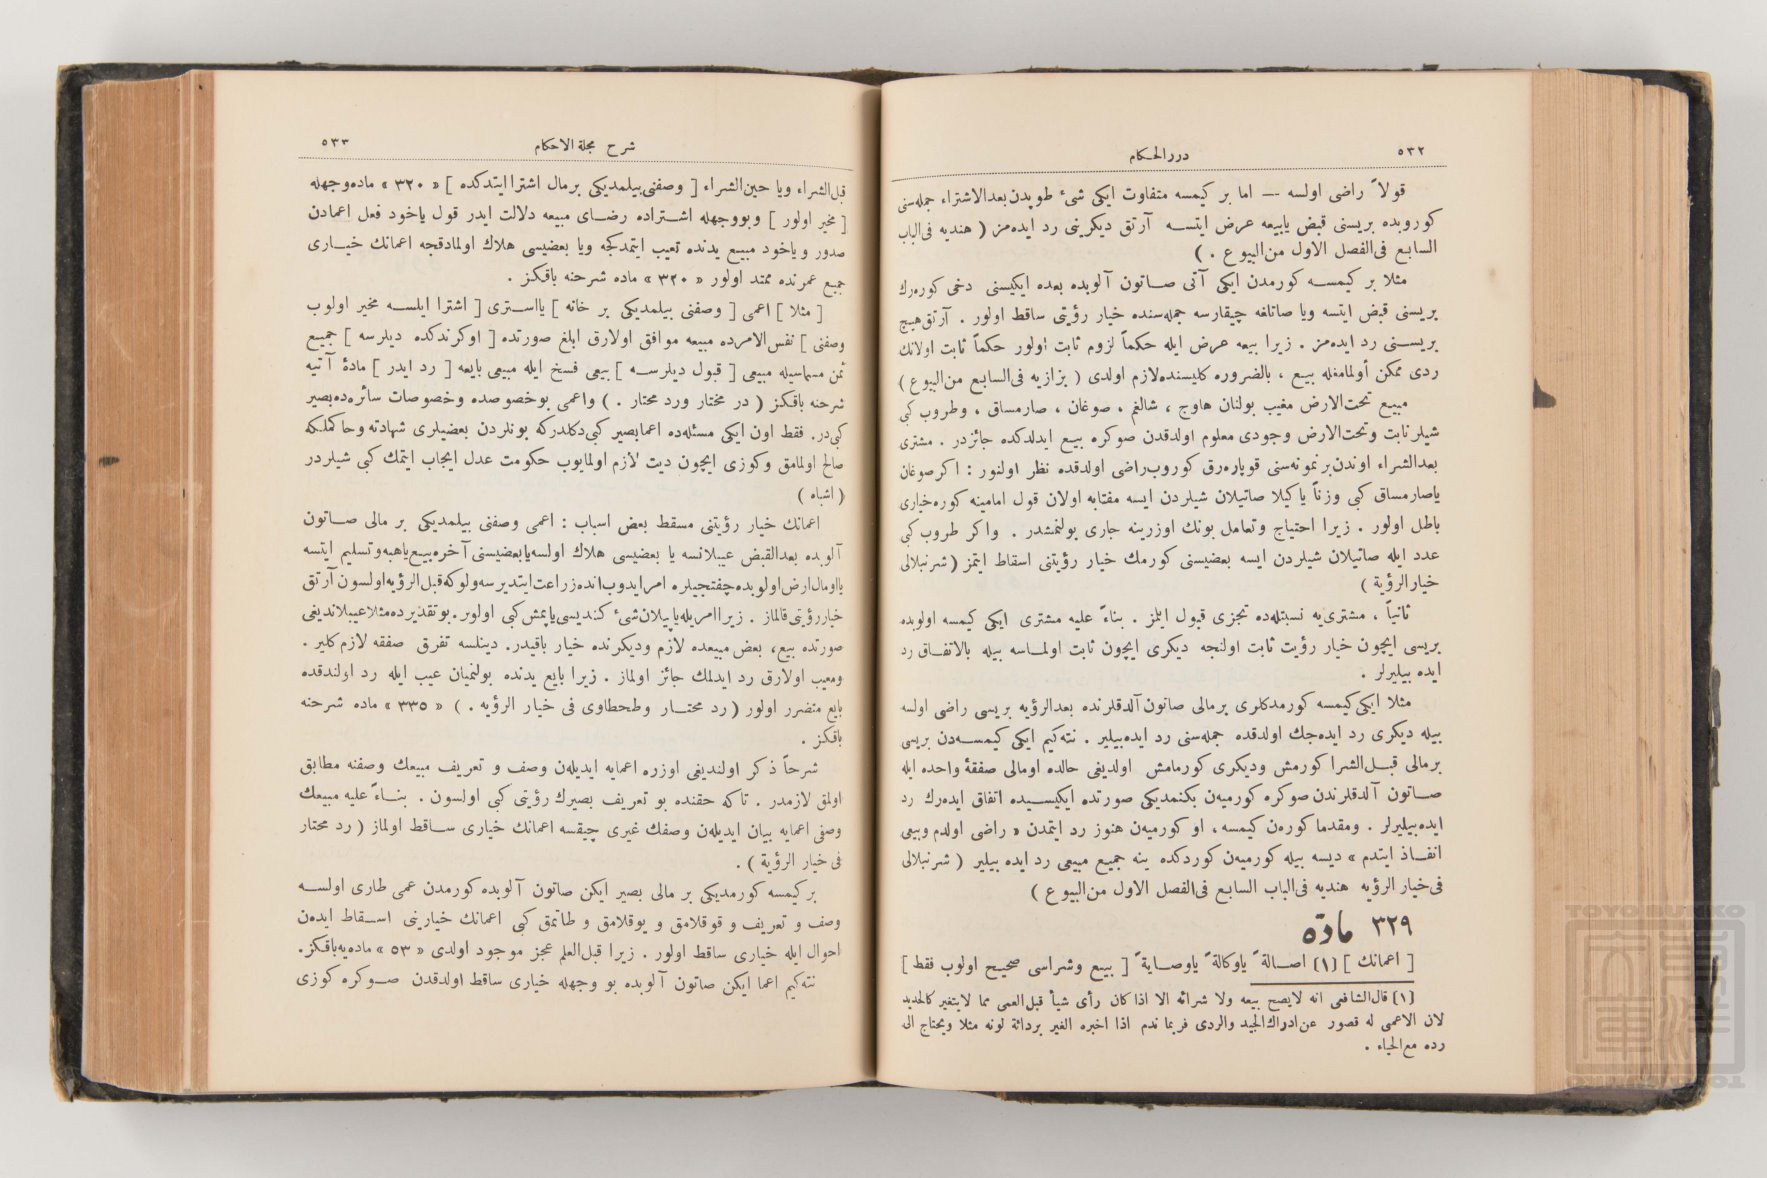 ٥٣٢
دررالحكام
قولاً راضى اولسه — اما بر كيمسه متفاوت ايكى شىء طوپدن بعدالاشتراء جمله‌سنى
كوروبده بريسنى قبض يابيعه عرض ايتســه آرتق ديكرينى رد ايده‌من ( هنديه فى‌الباب
السابع فى‌الفصل الاول من‌البيوع . )
مثلا بر كيمســه كورمدن ايكى آتى صــاتون آلوبده بعده ايكيسنى دخى كوره‌رك
بريسنى قبض ايتسه ويا صاتلغه چيقارسه جمله‌سنده خيار رؤيتى ساقط اولور . آرتق هيچ
بريســنى رد ايده‌مز . زيرا بيعه عرض ايله حكماً لزوم ثابت اولور حكماً ثابت اولانك
ردى ممكن أولمامغله بيـع ، بالضروره كليسنده لازم اولدى ( بزازيه فى‌السابع من‌البيوع )
مبيع تحت‌الارض مغيب بولنان هاوج ، شالغم ، صوغان ، صارمساق ، وطروب كبى
شيلر نابت وتحت‌الارض وجودى معلوم اولدقدن صوكره بيـع ايدلدكده جائزدر . مشترى
بعدالشراء اوندن بر نمونه‌سنى قوپاره‌رق كوروب راضى اولدقده نظر اولنور : اكر صوغان
ياصارمساق كبى وزناً يا كيلا صاتيلان شيلردن ايسه مفتابه اولان قول امامينه كوره خيارى
باطل اولور . زيرا احتياج وتعامل بونك اوزرينه جارى بولنمشدر . واكر طروب كبى
عدد ايله صاتيلان شيلردن ايسه بعضيسنى كورمك خيار رؤيتنى اسقاط ايتمز ( شرنبلالى
خيارالرؤية )
ثانياً ، مشترى‌يه نسبتله‌ده تجزى قبول ايلمز . بناءً عليه مشترى ايكى كيمسه اولوبده
بريسى ايچون خيار رؤيت ثابت اولنجه ديكرى ايچون ثابت اولمــاسه بيله بالاتفــاق رد
ايده بيليرلر .
مثلا ايكى كيمسه كورمدكلرى برمالى صاتون آلدقلرنده بعدالرؤيه بريسى راضى اولسه
بيله ديكرى رد ايده‌جك اولدقده جمله‌سنى رد ايده‌بيلير . نته‌كيم ايكى كيمســه‌دن بريسى
برمالى قبــل‌الشرا كورمش وديكرى كورمامش اولديغى حالده اومالى صفقهٔ واحده ايله
صــاتون آلدقلرندن صوكره كورميه‌ن بكنمديكى صورتده ايكيســيده اتفاق ايده‌رك رد
ايده‌بيليرلر . ومقدما كوره‌ن كيمسه ، او كورميه‌ن هنوز رد ايتمدن « راضى اولدم وبيعى
انفــاذ ايتدم » ديسه بيله كورميه‌ن كوردكده ينه جميع مبيعى رد ايده بيلير ( شرنبلالى
فى‌خيار الرؤيه هنديه فى‌الباب السابع فى‌الفصل الاول من‌البيوع )
٣٢٩ مادّه
[ اعمانك ] (١) اصــالةً ياوكالةً ياوصــايةً [ بيـع وشراسى صحيح اولوب فقط ]
(١) قال‌الشافعى انه لايصح بيعه ولا شرائه الا اذا كان رأى شيأ قبل‌العمى مما لايتغير كالحديد
لان الاعمى له قصور عن‌ادراك‌الجيد والردى فربما ندم اذا اخبره الغير بردائة لونه مثلا ويحتاج الى
رده مع‌الحياء .
شرح مجلةالاحكام
٥٣٣
قبل‌الشراء ويا حين‌الشراء [ وصفنى بيلمديكى برمال اشترا ايتدكده ] « ٣٢٠ » ماده‌وجهله
[ مخير اولور ] وبووجهله اشــتراده رضــاى مبيعه دلالت ايدر قول ياخود فعل اعمادن
صدور وياخود مبيـع يدنده تعيب ايتمدكجه ويا بعضيسى هلاك اولمادقجه اعمانك خيــارى
جميع عمرنده ممتد اولور « ٣٢٠ » ماده شرحنه باقكز .
[ مثلا ] اعمى [ وصفنى بيلمديكى بر خانه ] يااســترى [ اشترا ايلســه مخير اولوب
وصفنى ] نفس‌الامرده مبيعه موافق اولارق ابلغ صورتده [ اوكرندكده ديلرسه ] جميـع
ثمن مسماسيله مبيعى [ قبول ديلرســه ] بيعى فسخ ايله مبيعى بايعه [ رد ايدر ] مادهٔ آتيه
شرحنه باقكز ( در مختار ورد محتار . ) واعمى بوخصوصده وخصوصات سائره‌ده بصير
كبى‌در. فقط اون ايكى مسئله‌ده اعما بصير كبى دكلدركه بونلردن بعضيلرى شهادته وحاكملكه
صالح اولمامق وكوزى ايچون ديت لازم اولمايوب حكومت عدل ايجاب ايتمك كبى شيلردر
( اشباه )
اعمانك خيار رؤيتنى مسقط بعض اسباب : اعمى وصفنى بيلمديكى بر مالى صــاتون
آلوبده بعدالقبض عيبلانسه يا بعضيسى هلاك اولسه يا بعضيسنى آخره بيـع ياهبه وتسليم ايتسه
يا اومال ارض اولوبده چفتجيلره امر ايدوب انده زراعت ايتديرسه ولوكه قبل الرؤيه اولسون آرتق
خيار رؤيتى قالماز . زيرا امريله ياپيلان شىء كنديسى ياپمش كبى اولور. بو تقديرده مثلا عيبلانديغى
صورتده بيع، بعض مبيعده لازم وديكرنده خيار باقيدر. دينلسه تفرق صفقه لازم كلير .
ومعيب اولارق رد ايدلمك جائز اولماز . زيرا بايع يدنده بولنميان عيب ايله رد اولندقده
بايع متضرر اولور ( رد محتــار وطحطاوى فى خيار الرؤيه . ) « ٣٣٥ » ماده شرحنه
باقكز .
شرحاً ذكر اولنديغى اوزره اعمايه ايديلن وصف و تعريف مبيعك وصفنه مطابق
اولمق لازمدر . تاكه حقنده بو تعريف بصيرك رؤيتى كبى اولسون . بنــاءً عليه مبيعك
وصفى اعمايه بيان ايديلن وصفك غيرى چيقسه اعمانك خيارى ســاقط اولماز ( رد محتار
فى خيار الرؤية ) .
بر كيمسه كورمديكى بر مالى بصير ايكن صاتون آلوبده كورمدن عمى طارى اولســه
وصف و تعريف و قوقلامق و يوقلامق و طاتمق كبى اعمانك خيارينى اســقاط ايده‌ن
احوال ايله خيارى ساقط اولور . زيرا قبل‌العلم عجز موجود اولدى « ٥٣ » ماده‌يه باقكز.
نته‌كيم اعما ايكن صاتون آلوبده بو وجهله خيارى ساقط اولدقدن صــوكره كوزى
TOYO BUNKO